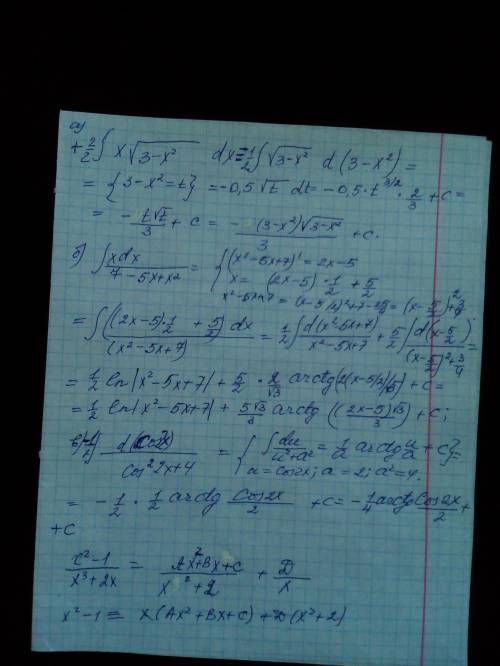 а)
+ 2/2 ∫ x √(3-x²) dx = 1/2 ∫ √(3-x²) d(3-x²) =
= {3-x²=t} = -0,5 √t dt = -0,5 · t^(3/2) · 2/3 + c =
= - t√t/3 + c = - (3-x²)√(3-x²)/3 + c.
б) ∫ xdx/(7-5x+x²) = { (x²-5x+7)' = 2x-5
x = (2x-5) · 1/2 + 5/2
x²-5x+7 = (x-5/2)²+7-25/4 = (x-5/2)²+3/4
= ∫ ((2x-5) 1/2 + 5/2) dx/(x²-5x+7) = 1/2 ∫ d(x²-5x+7)/(x²-5x+7) + 5/2 ∫ d(x-5/2)/((x-5/2)²+3/4) =
= 1/2 ln|x²-5x+7| + 5/2 · 2/√3 arctg(2(x-5/2)/√3) + c =
= 1/2 ln|x²-5x+7| + 5√3/ arctg ((2x-5)√3/3) + c;
в) d(cos2x)/(cos²2x+4) = { ∫ du/(u²+a²) = 1/a arctg u/a + c } =
u = cos2x; a = 2; a² = 4.
= - 1/2 · 1/2 arctg cos2x/2 + c = - 1/4 arctg cos2x/2 +
+ c
(x²-1)/(x³+2x) = (Ax²+Bx+C)/(x²+2) + D/x
x²-1 ≡ x(Ax²+Bx+C) + D(x²+2)